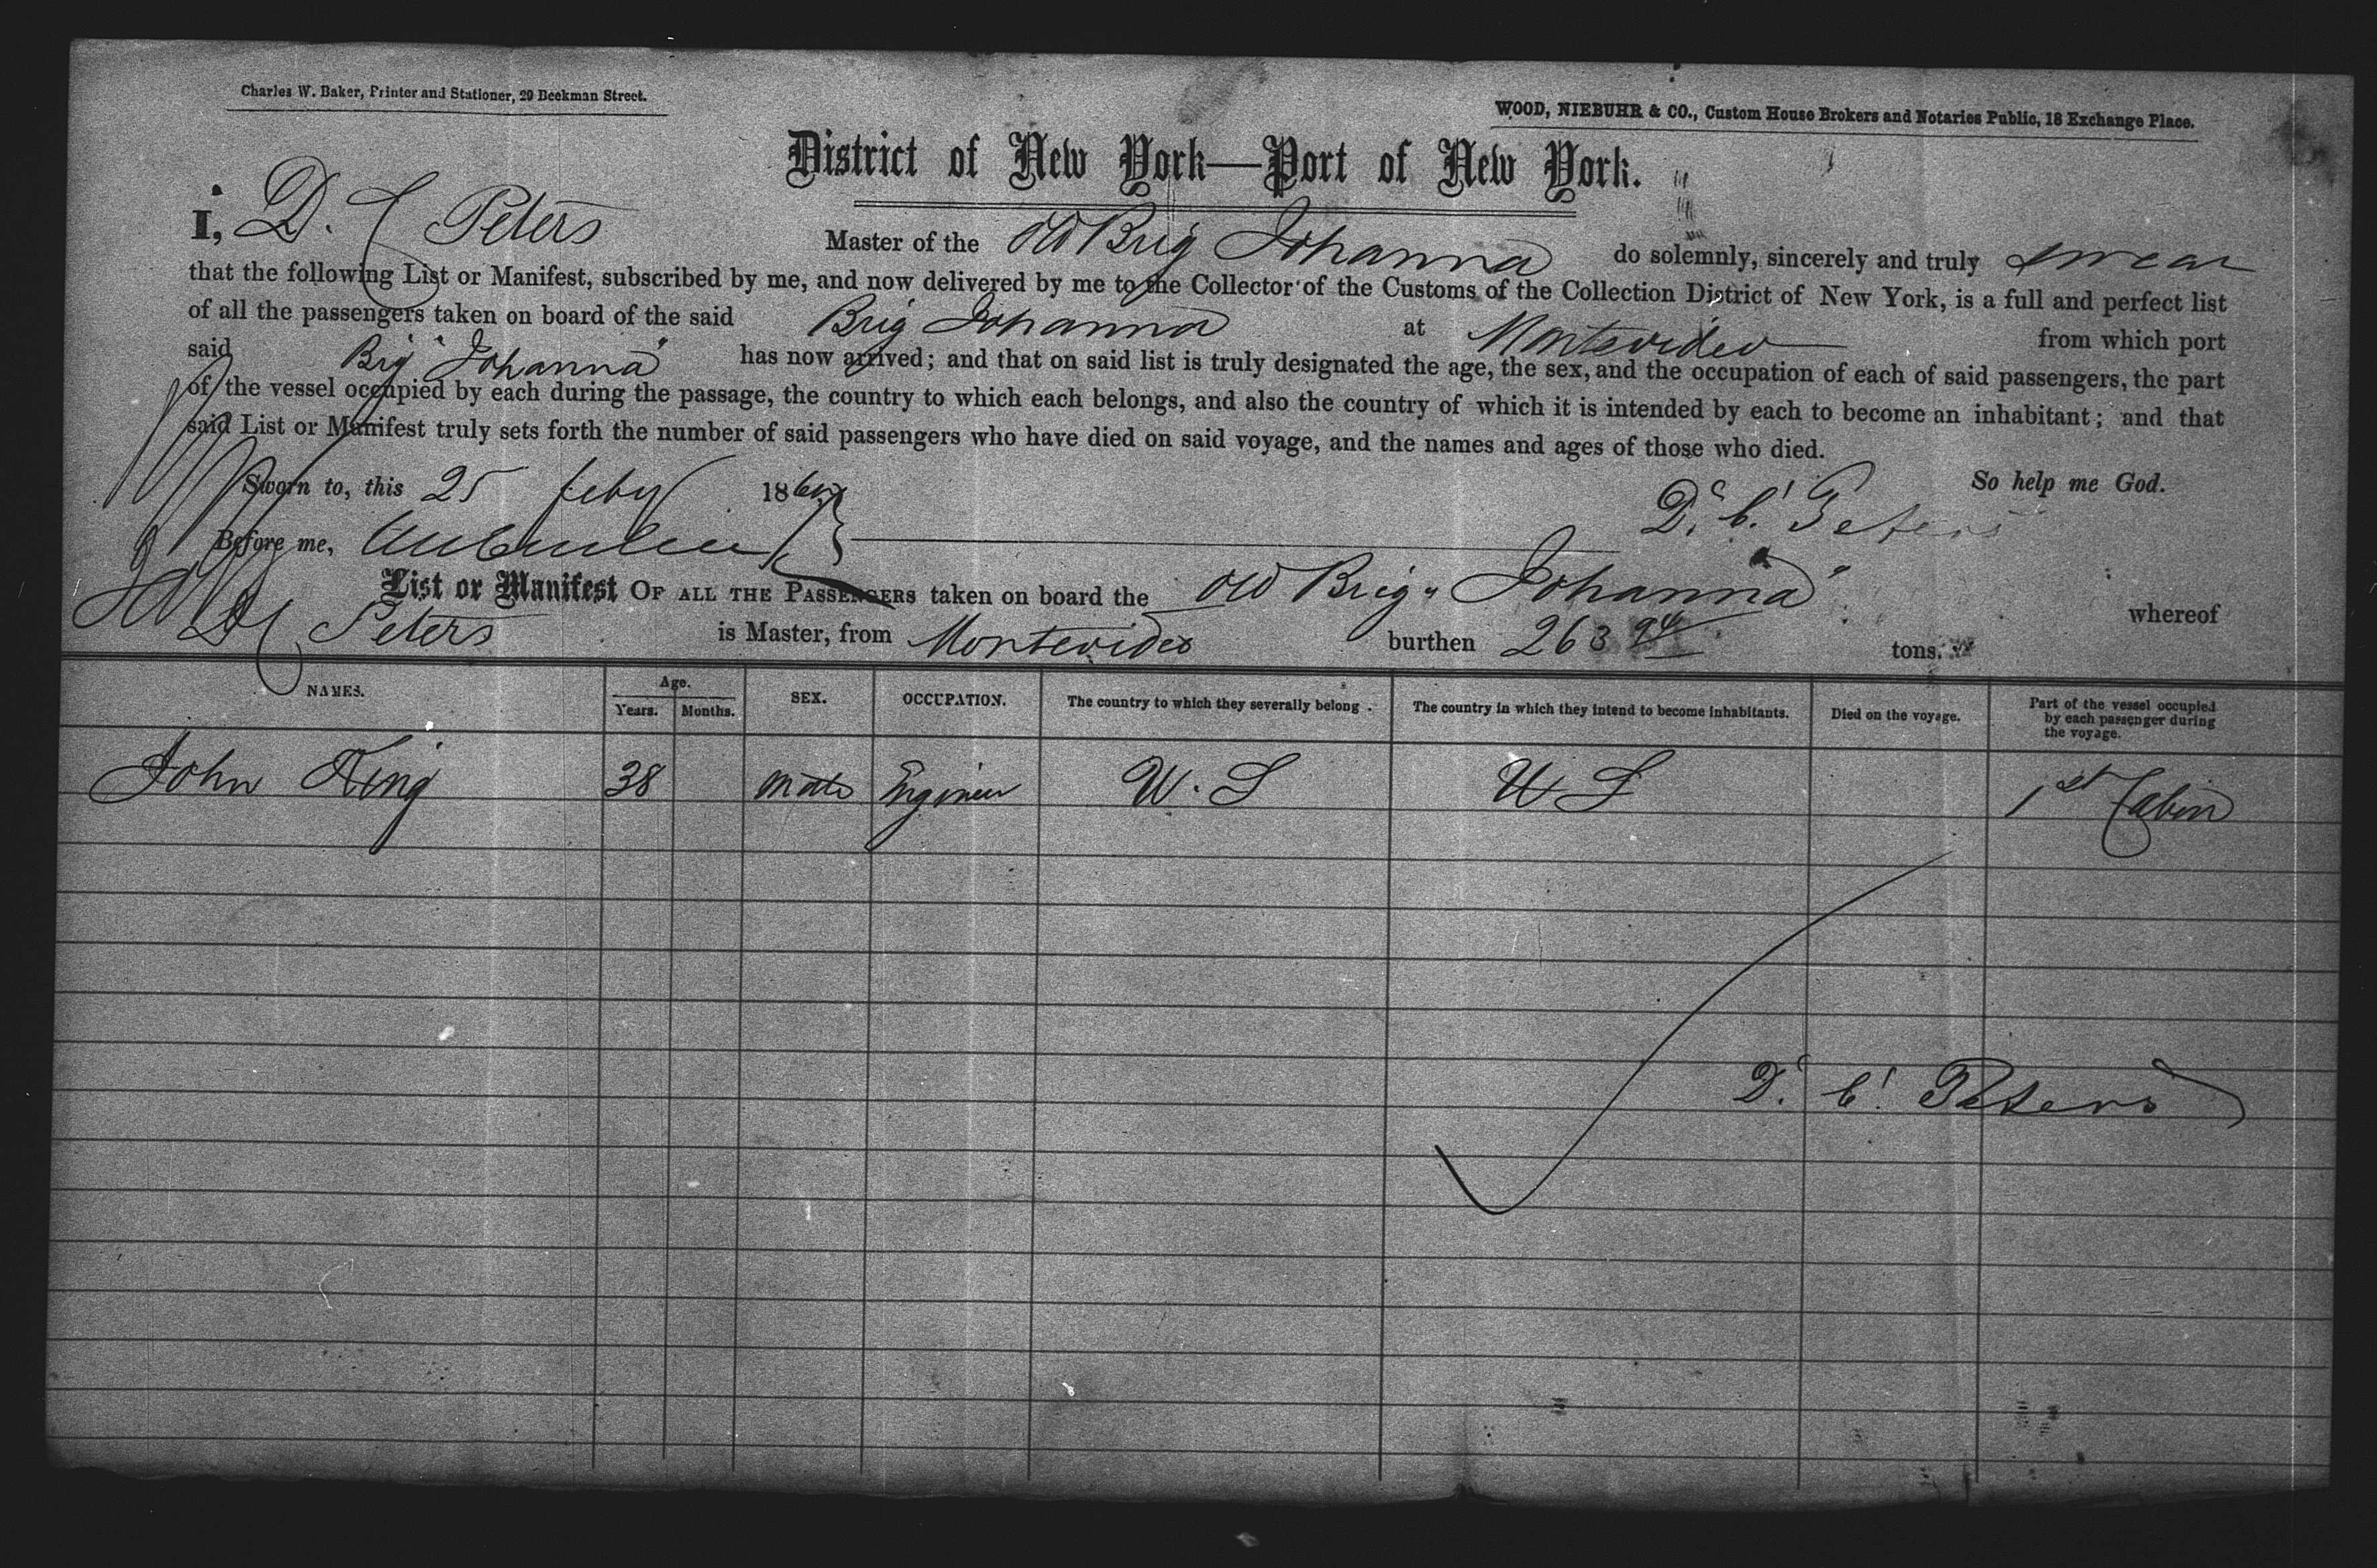 Charles W. Baker, Printer and Stationer, 29 Beekman Street.
WOOD, NIEBUHR & CO., Custom House Brokers and Notaries Public, 18 Exchange Place.
District of New York—Port of New York.
I, D. C Peters Master of the Old Brig Johanna do solemnly, sincerely and truly swear
that the following List or Manifest, subscribed by me, and now delivered by me to the Collector of the Customs of the Collection District of New York, is a full and perfect list
of all the passengers taken on board of the said Brig Johanna at Montevideo from which port
said Brig "Johanna" has now arrived; and that on said list is truly designated the age, the sex, and the occupation of each of said passengers, the part
of the vessel occupied by each during the passage, the country to which each belongs, and also the country of which it is intended by each to become an inhabitant; and that
said List or Manifest truly sets forth the number of said passengers who have died on said voyage, and the names and ages of those who died.
So help me God.
Sworn to, this 25 feby 186
D. C. Peters
Before me,
List or Manifest OF ALL THE PASSENGERS taken on board the Old Brig "Johanna" whereof
D C Peters is Master, from Montevideo burthen 263 94 tons.
NAMES. Age. Years. Months. SEX. OCCUPATION. The country to which they severally belong. The country in which they intend to become inhabitants. Died on the voyage. Part of the vessel occupied by each passenger during the voyage.
John King 38 Male Engineer U. S U S 1st Cabin
D. C. Peters